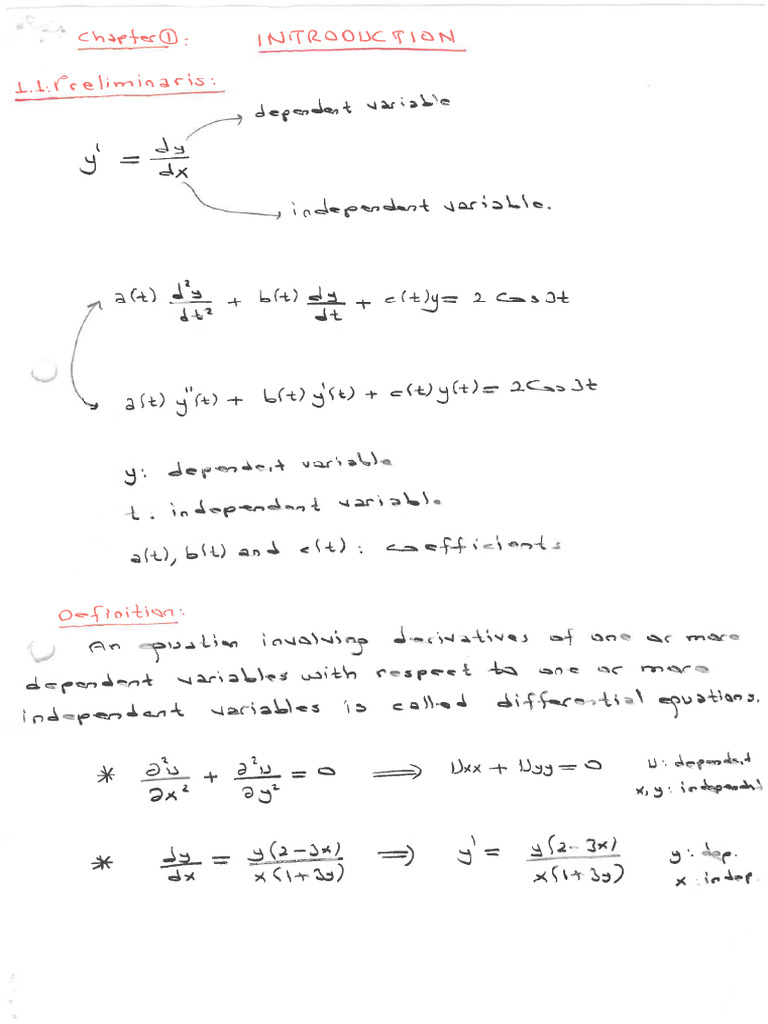 Chapter ①: INTRODUCTION
1.1: Preliminaris:
dependent variable
y' = dy/dx
independent variable.
a(t) d²y/dt² + b(t) dy/dt + c(t)y = 2 Cos 3t
a(t) y''(t) + b(t) y'(t) + c(t) y(t) = 2 Cos 3t
y: dependent variable
t: independent variable
a(t), b(t) and c(t): coefficients
Definition:
An equation involving derivatives of one or more
dependent variables with respect to one or more
independent variables is called differential equations.
* ∂²u/∂x² + ∂²u/∂y² = 0 ⟹ Uxx + Uyy = 0 U: dependent
x, y: independent
* dy/dx = y(2-3x)/x(1+3y) ⟹ y' = y(2-3x)/x(1+3y) y: dep.
x: indep.